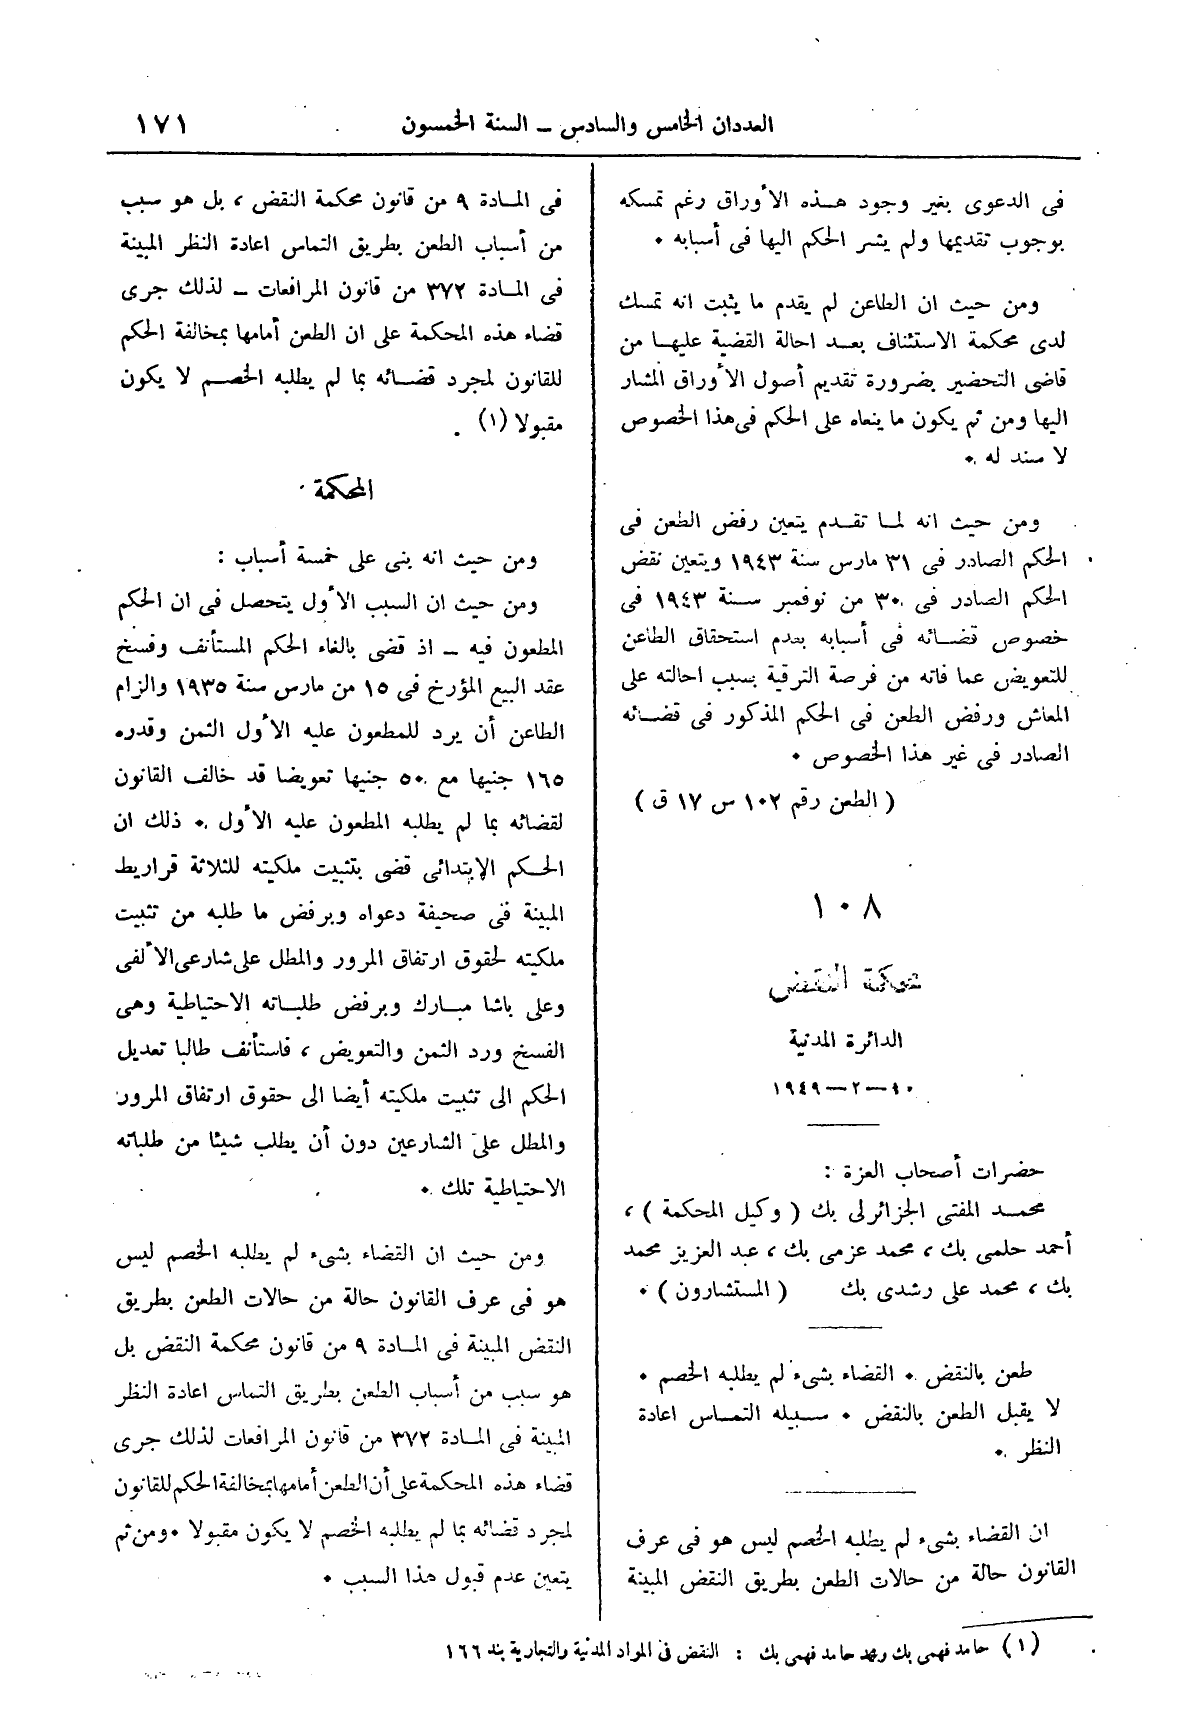 العددان الخامس والسادس – السنة الخمسون
١٧١
فى الدعوى بغير وجود هذه الأوراق رغم تمسكه
بوجوب تقديمها ولم يشر الحكم اليها فى أسبابه .
ومن حيث ان الطاعن لم يقدم ما يثبت انه تمسك
لدى محكمة الاستئناف بعد احالة القضية عليها من
قاضى التحضير بضرورة تقديم أصول الأوراق المشار
اليها ومن ثم يكون ما ينعاه على الحكم فى هذا الخصوص
لا سند له .
ومن حيث انه لما تقدم يتعين رفض الطعن فى
الحكم الصادر فى ٣١ مارس سنة ١٩٤٣ ويتعين نقض
الحكم الصادر فى ٣٠ من نوفمبر سنة ١٩٤٣ فى
خصوص قضائه فى أسبابه بعدم استحقاق الطاعن
للتعويض عما فاته من فرصة الترقية بسبب احالته على
المعاش ورفض الطعن فى الحكم المذكور فى قضائه
الصادر فى غير هذا الخصوص .
( الطعن رقم ١٠٢ س ١٧ ق )
١٠٨
محكمة النقض
الدائرة المدنية
١٠–٢–١٩٤٩
حضرات أصحاب العزة :
محمد المفتى الجزائرلى بك ( وكيل المحكمة ) ،
أحمد حلمى بك ، محمد عزمى بك ، عبد العزيز محمد
بك ، محمد على رشدى بك ( المستشارون ) .
طعن بالنقض . القضاء بشىء لم يطلبه الخصم .
لا يقبل الطعن بالنقض . سبيله التماس اعادة
النظر .
ان القضاء بشىء لم يطلبه الخصم ليس هو فى عرف
القانون حالة من حالات الطعن بطريق النقض المبينة
فى المادة ٩ من قانون محكمة النقض ، بل هو سبب
من أسباب الطعن بطريق التماس اعادة النظر المبينة
فى المادة ٣٧٢ من قانون المرافعات – لذلك جرى
قضاء هذه المحكمة على ان الطعن أمامها بمخالفة الحكم
للقانون لمجرد قضائه بما لم يطلبه الخصم لا يكون
مقبولا (١) .
المحكمة
ومن حيث انه بنى على خمسة أسباب :
ومن حيث ان السبب الأول يتحصل فى ان الحكم
المطعون فيه – اذ قضى بالغاء الحكم المستأنف وفسخ
عقد البيع المؤرخ فى ١٥ من مارس سنة ١٩٣٥ والزام
الطاعن أن يرد للمطعون عليه الأول الثمن وقدره
١٦٥ جنيها مع ٥٠ جنيها تعويضا قد خالف القانون
لقضائه بما لم يطلبه المطعون عليه الأول . ذلك ان
الحكم الإبتدائى قضى بتثبيت ملكيته للثلاثة قراريط
المبينة فى صحيفة دعواه وبرفض ما طلبه من تثبيت
ملكيته لحقوق ارتفاق المرور والمطل على شارعى الألفى
وعلى باشا مبارك وبرفض طلباته الاحتياطية وهى
الفسخ ورد الثمن والتعويض ، فاستأنف طالبا تعديل
الحكم الى تثبيت ملكيته أيضا الى حقوق ارتفاق المرور
والمطل على الشارعين دون أن يطلب شيئا من طلباته
الاحتياطية تلك .
ومن حيث ان القضاء بشىء لم يطلبه الخصم ليس
هو فى عرف القانون حالة من حالات الطعن بطريق
النقض المبينة فى المادة ٩ من قانون محكمة النقض بل
هو سبب من أسباب الطعن بطريق التماس اعادة النظر
المبينة فى المادة ٣٧٢ من قانون المرافعات لذلك جرى
قضاء هذه المحكمة على أن الطعن أمامها بمخالفة الحكم للقانون
لمجرد قضائه بما لم يطلبه الخصم لا يكون مقبولا . ومن ثم
يتعين عدم قبول هذا السبب .
(١) حامد فهمى بك ومحمد حامد فهمى بك : النقض فى المواد المدنية والتجارية بند ١٦٦